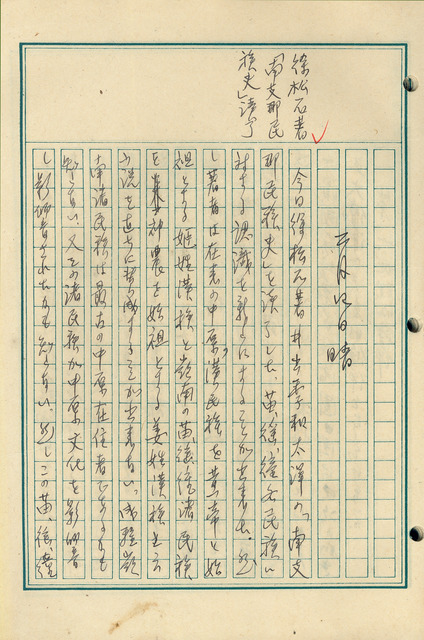 徐松石著
「南支那民
族史」読了
二月 日 晴
今日徐松石著井出季和太訳の「南支
那民族史」を読了した、苗、徭、僮各民族に
対する認識を新にすることが出来た、然
し著者は在来の中原漢民族を黄帝を始
祖とする姫姓漢族と嶺南の苗、徭僮諸民族
を 神農を始祖とする姜姓漢族と云
ふ説を直ちに賛成することが出来ない、成程嶺
南諸民族は最古の中原在住者であるかも
知れない、又その諸民族が中原文化を影響
し影響されたかも知れない、然しこの苗、徭、僮